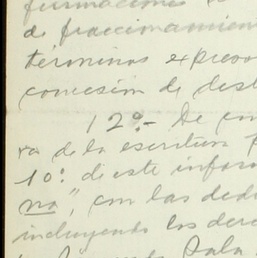 de fraccionamien
términos expreso
concesión de dest
12º.- De con
ra de la escritura
10º. de este infor
na", con las dedu
incluyendo los dere
Sala